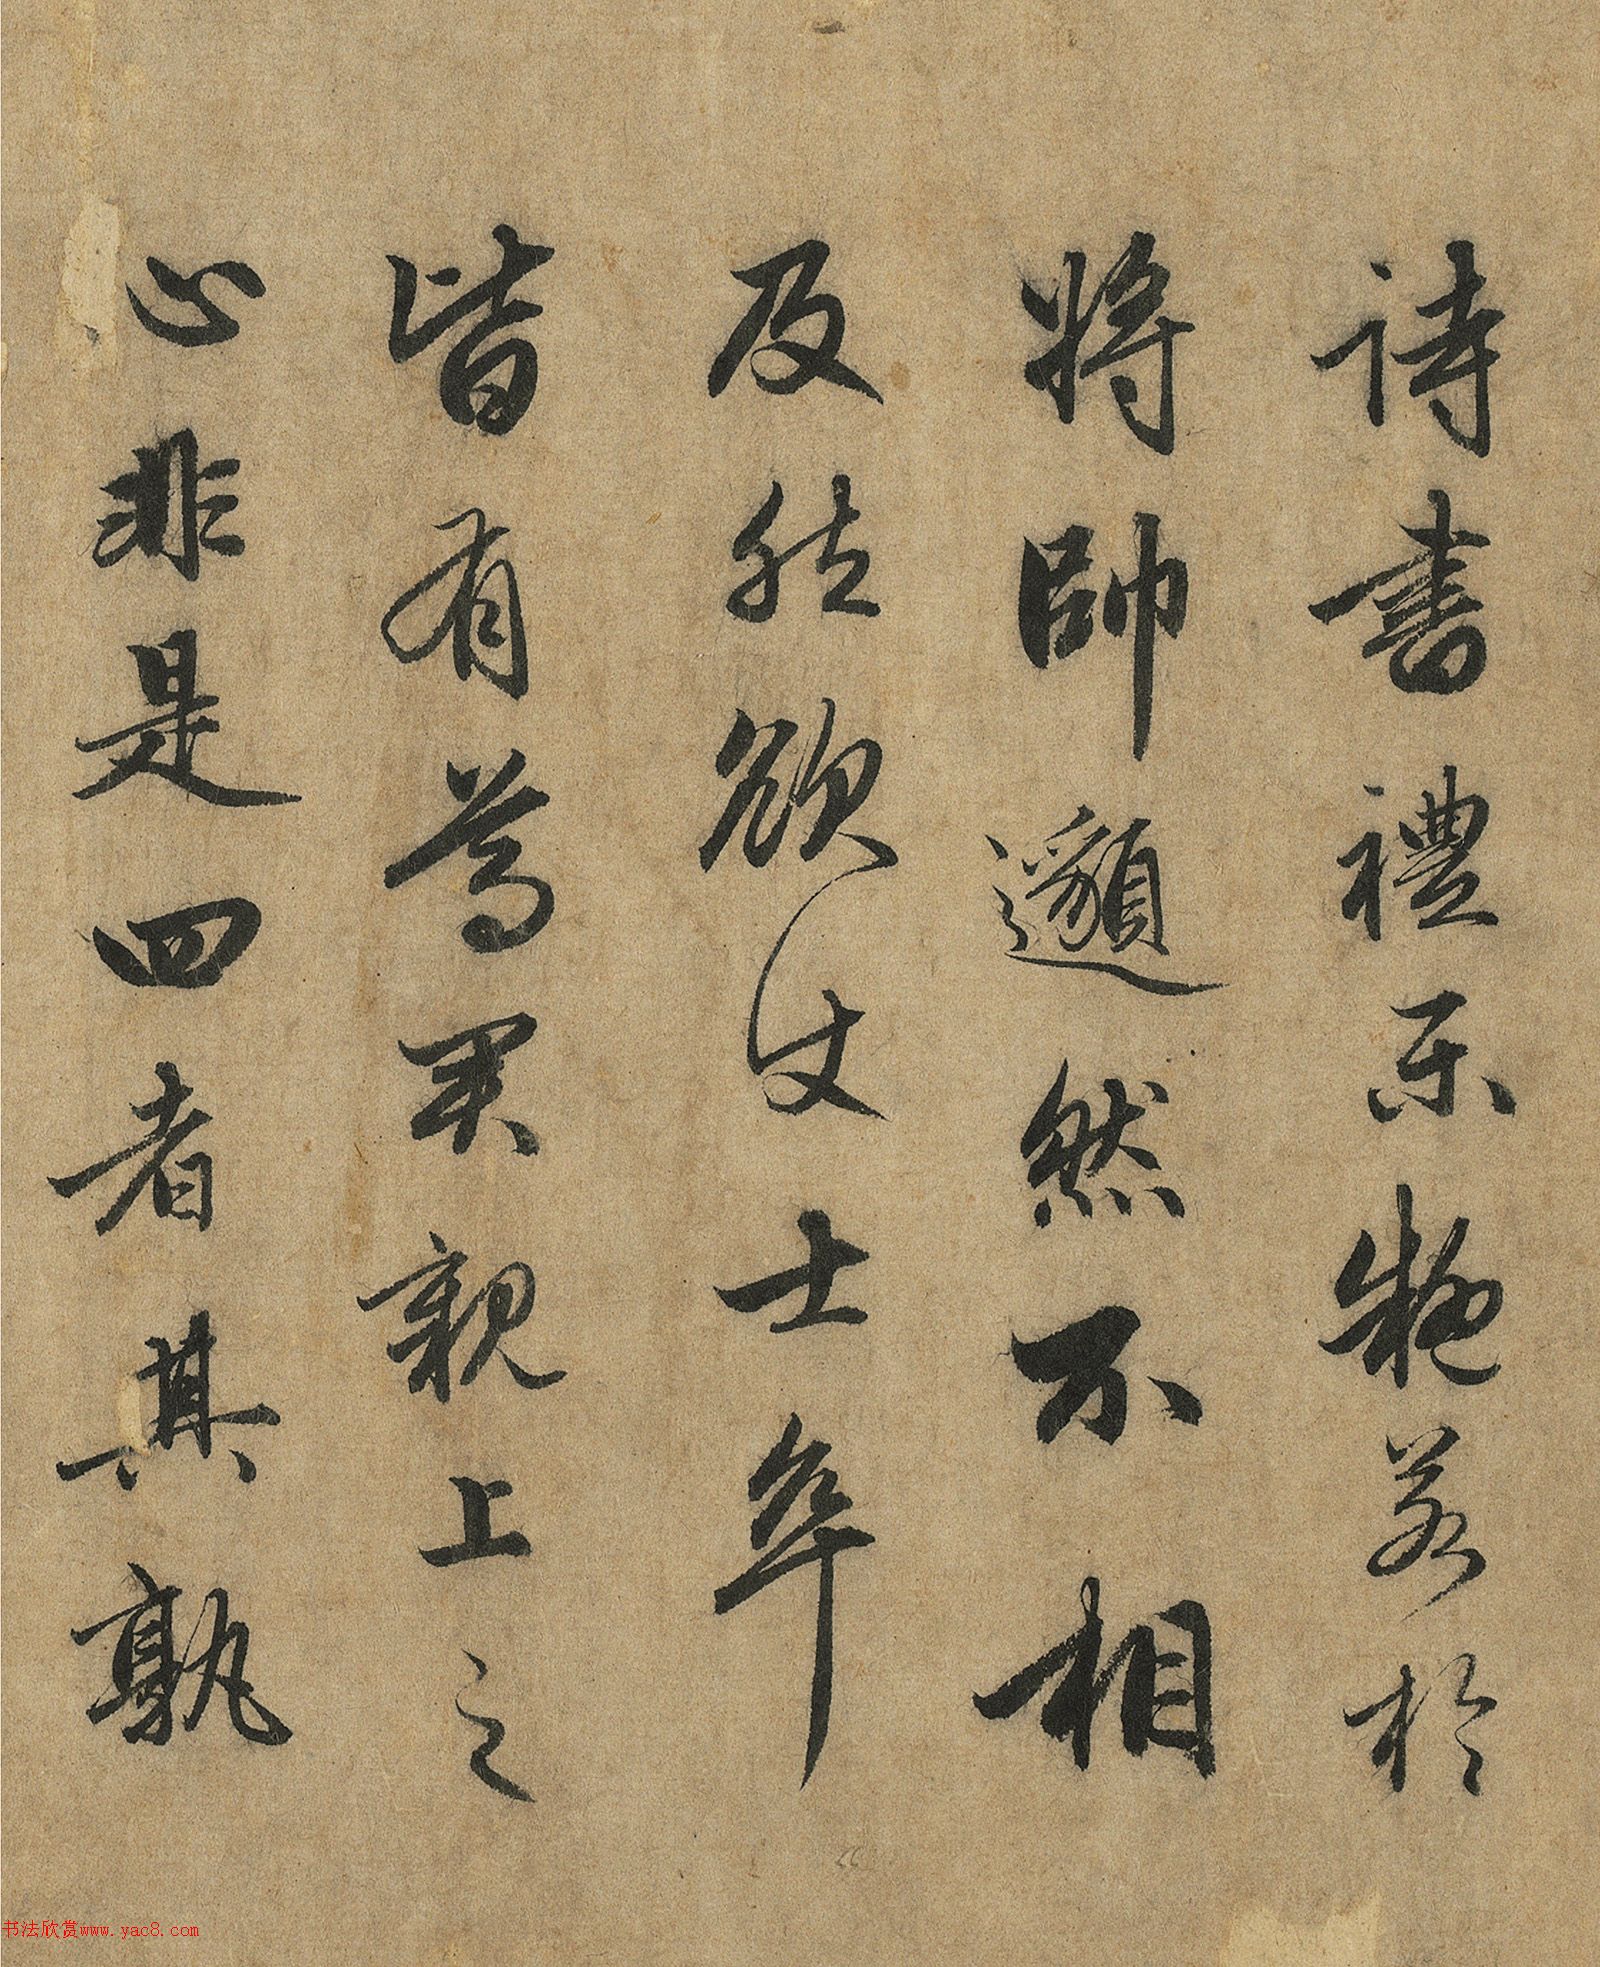 詩書禮樂疑若於
將帥邈然不相
及然欲使士卒
皆有尊君親上之
心非是四者其孰
书法欣赏www.yac8.com